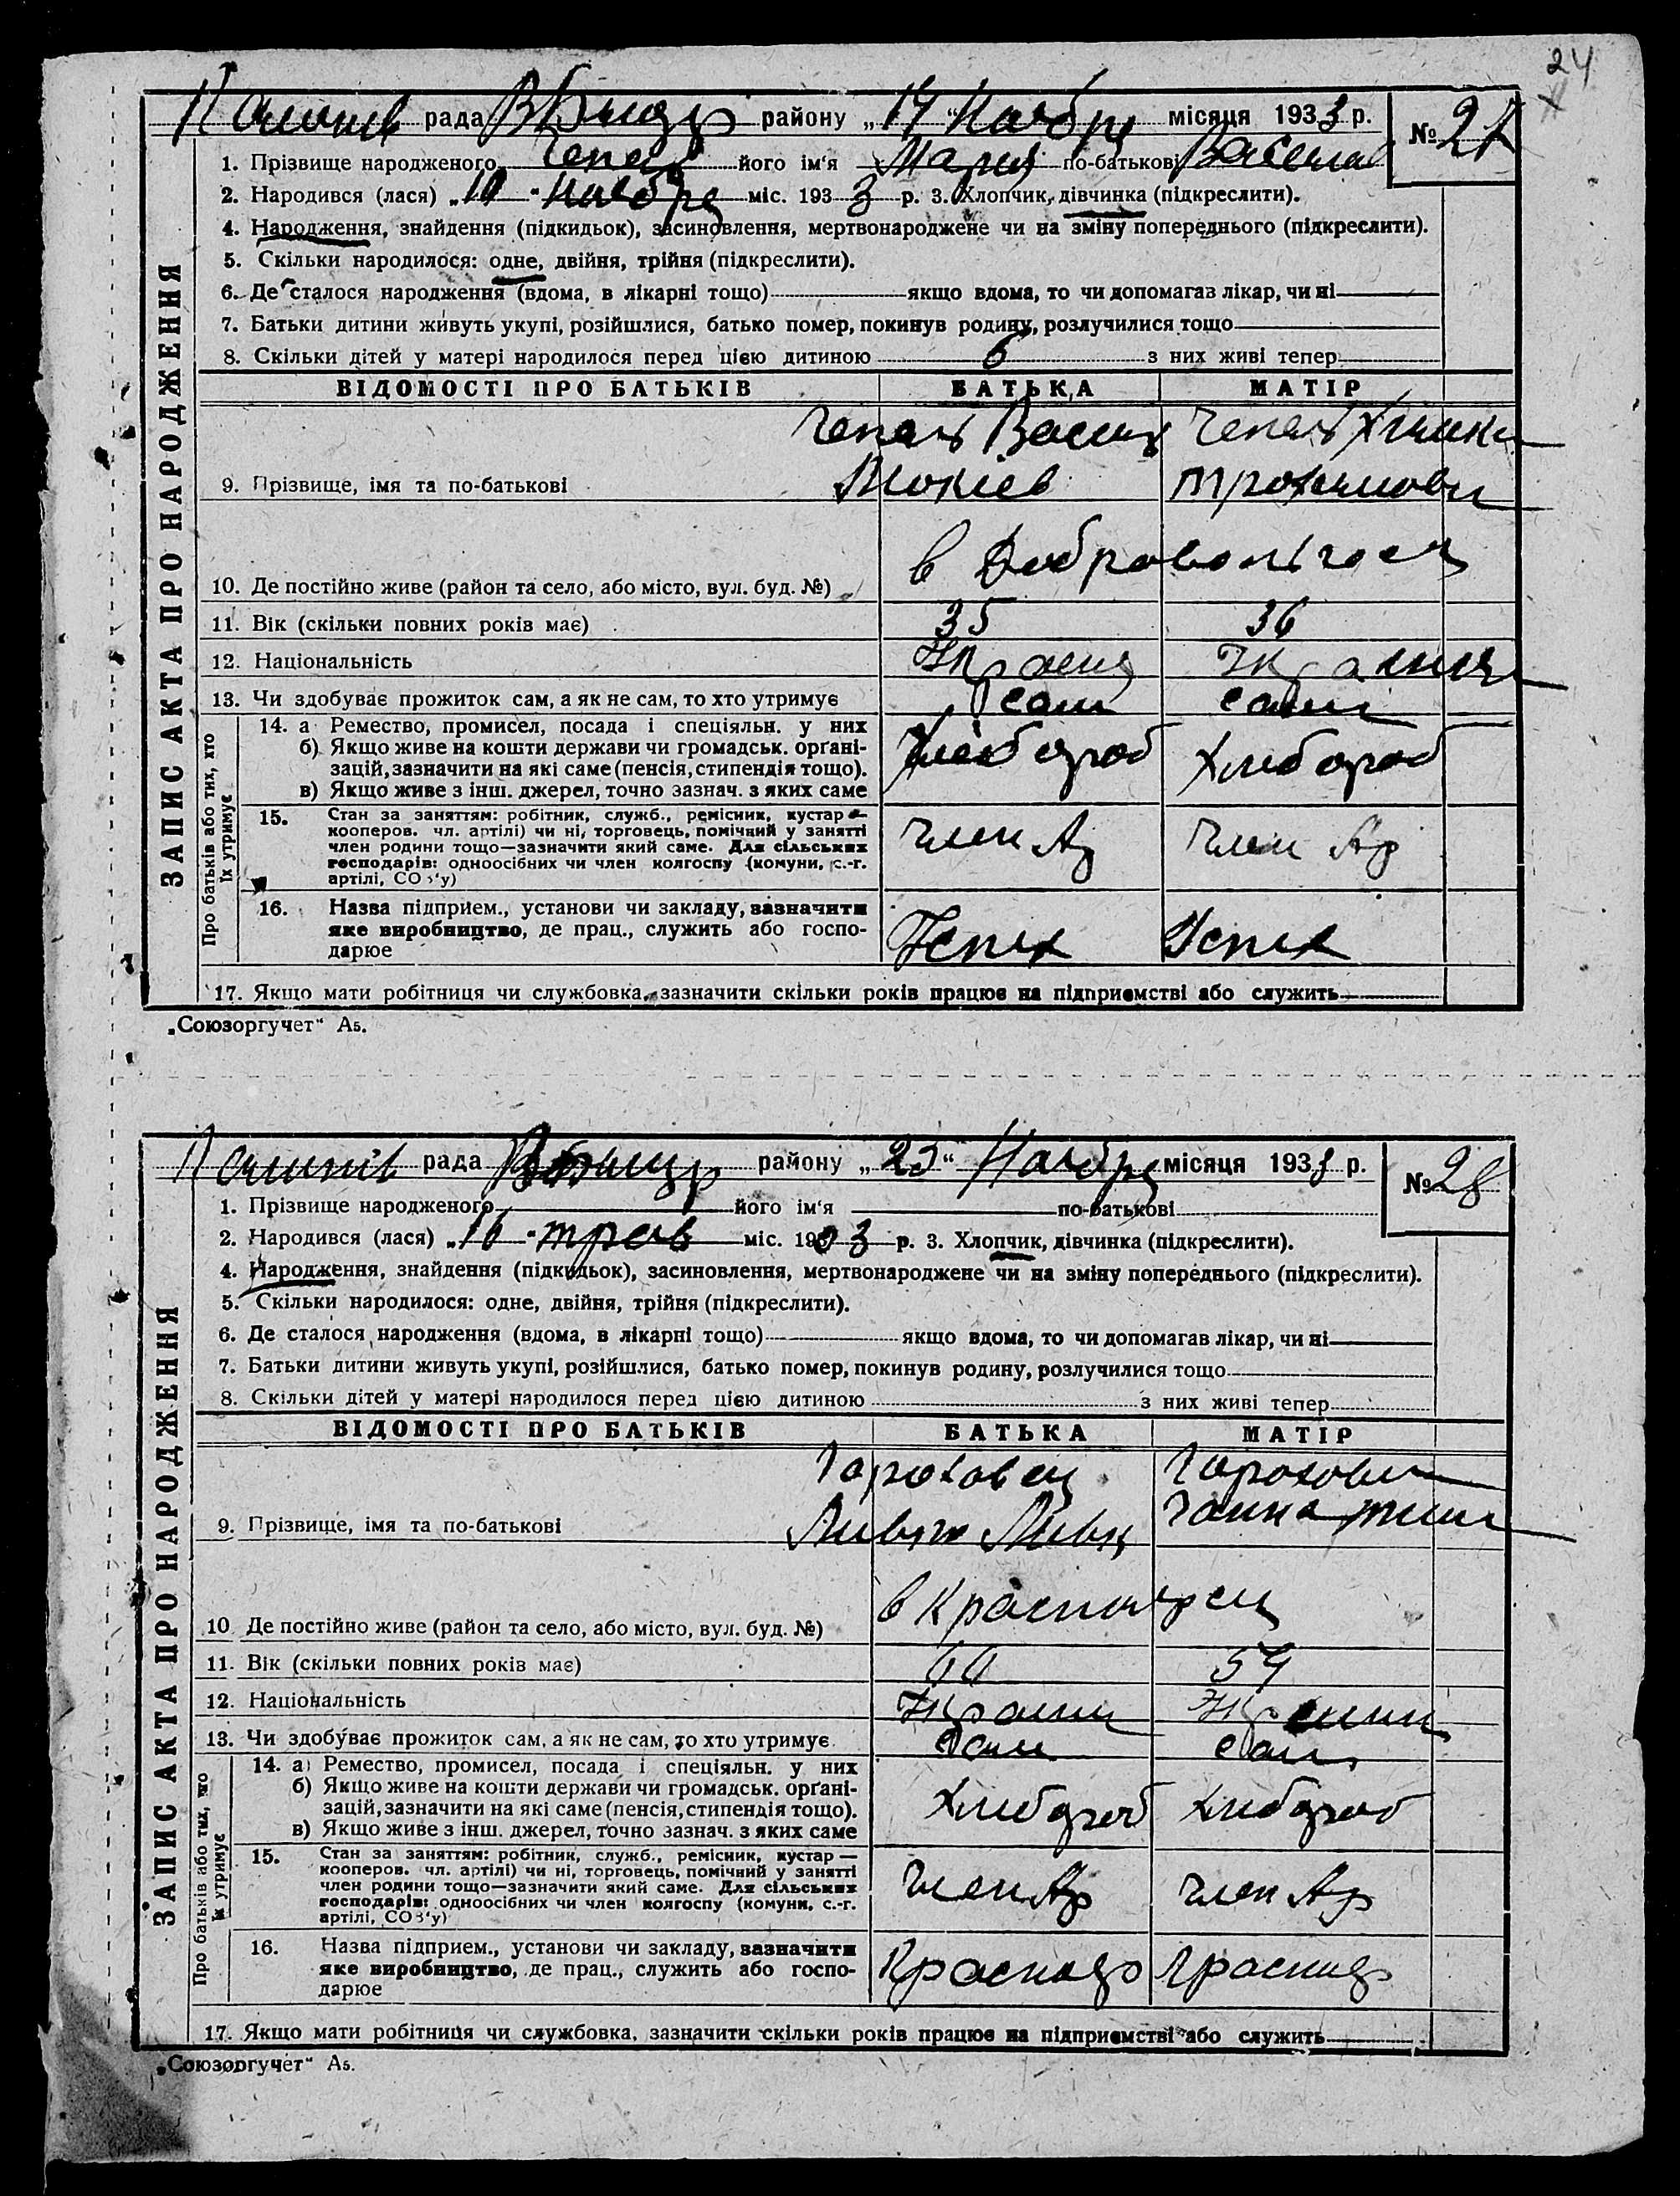 24
рада району „14“ Ноабря місяця 1933 р. № 27
1. Прізвище народженого Чепель його ім‘я Мария по-батькові
2. Народився (лася) „10“ Ноабря міс. 1933 р. 3. Хлопчик, дівчинка (підкреслити).
4. Народження, знайдення (підкидьок), засиновлення, мертвонароджене чи на зміну попереднього (підкреслити).
5. Скільки народилося: одне, двійня, трійня (підкреслити).
6. Де сталося народження (вдома, в лікарні тощо) якщо вдома, то чи допомагав лікар, чи ні
7. Батьки дитини живуть укупі, розійшлися, батько помер, покинув родину, розлучилися тощо
8. Скільки дітей у матері народилося перед цією дитиною 6 з них живі тепер
ЗАПИС АКТА ПРО НАРОДЖЕННЯ
ВІДОМОСТІ ПРО БАТЬКІВ БАТЬКА МАТІР
Чепель Чепель
9. Прізвище, імя та по-батькові
10. Де постійно живе (район та село, або місто, вул. буд. №)
11. Вік (скільки повних років має) 35 36
12. Національність
13. Чи здобуває прожиток сам, а як не сам, то хто утримує сам сама
Про батьків або тих, хто їх утримує
14. а Ремество, промисел, посада і спеціяльн. у них
б) Якщо живе на кошти держави чи громадськ. орґані-
зацій, зазначити на які саме (пенсія, стипендія тощо). Хлебороб Хлебороб
в) Якщо живе з інш. джерел, точно зазнач. з яких саме
15. Стан за заняттям: робітник, служб., ремісник, кустар —
кооперов. чл. артілі) чи ні, торговець, помічний у занятті
член родини тощо—зазначити який саме. Для сільських член Ар член Ар
господарів: одноосібних чи член колгоспу (комуни, с.-г.
артілі, СОЗ‘у)
16. Назва підприєм., установи чи закладу, зазначити
яке виробництво, де прац., служить або госпо- Успех Успех
дарює
17. Якщо мати робітниця чи службовка, зазначити скільки років працює на підприємстві або служить
„Союзоргучет“ А5.
рада району „23“ Ноабря місяця 1933 р. № 28
1. Прізвище народженого його ім‘я по-батькові
2. Народився (лася) „16“ трав міс. 1903 р. 3. Хлопчик, дівчинка (підкреслити).
4. Народження, знайдення (підкидьок), засиновлення, мертвонароджене чи на зміну попереднього (підкреслити).
5. Скільки народилося: одне, двійня, трійня (підкреслити).
6. Де сталося народження (вдома, в лікарні тощо) якщо вдома, то чи допомагав лікар, чи ні
7. Батьки дитини живуть укупі, розійшлися, батько помер, покинув родину, розлучилися тощо
8. Скільки дітей у матері народилося перед цією дитиною з них живі тепер
ЗАПИС АКТА ПРО НАРОДЖЕННЯ
ВІДОМОСТІ ПРО БАТЬКІВ БАТЬКА МАТІР
Ганна
9. Прізвище, імя та по-батькові
10. Де постійно живе (район та село, або місто, вул. буд. №)
11. Вік (скільки повних років має) 60 59
12. Національність
13. Чи здобуває прожиток сам, а як не сам, то хто утримує сам сам
Про батьків або тих, що їх утримує
14. а) Ремество, промисел, посада і спеціяльн. у них
б) Якщо живе на кошти держави чи громадськ. орґані-
зацій, зазначити на які саме (пенсія, стипендія тощо). Хлебороб Хлебороб
в) Якщо живе з інш. джерел, точно зазнач. з яких саме
15. Стан за заняттям: робітник, служб., ремісник, кустар —
кооперов. чл. артілі) чи ні, торговець, помічний у занятті
член родини тощо—зазначити який саме. Для сільських член Ар член Ар
господарів: одноосібних чи член колгоспу (комуни, с.-г.
артілі, СОЗ‘у)
16. Назва підприєм., установи чи закладу, зазначити
яке виробництво, де прац., служить або госпо-
дарює
17. Якщо мати робітниця чи службовка, зазначити скільки років працює на підприємстві або служить
„Союзоргучет“ А5.